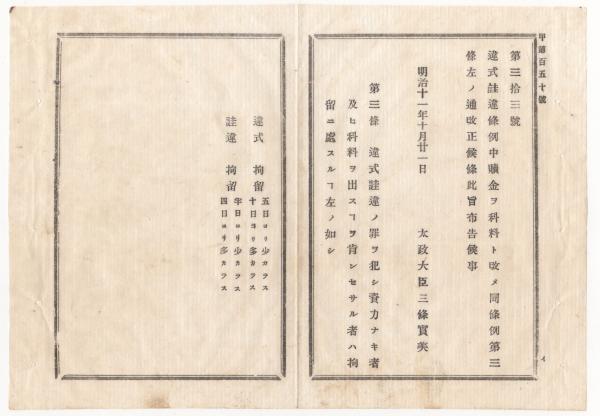 甲第百五十號
第三拾三號
違式詿違條例中贖金ヲ科料ト改メ同條例第三
條左ノ通改正候條此旨布告候事
明治十一年十月廿一日
太政大臣三條實美
第三條 違式詿違ノ罪ヲ犯シ資力ナキ者
及ヒ科料ヲ出スヿヲ肯ンセサル者ハ拘
留ニ處スルヿ左ノ如シ
違式 拘留
五日ヨリ少カラス
十日ヨリ多カラス
詿違 拘留
半日ヨリ少カラス
四日ヨリ多カラス